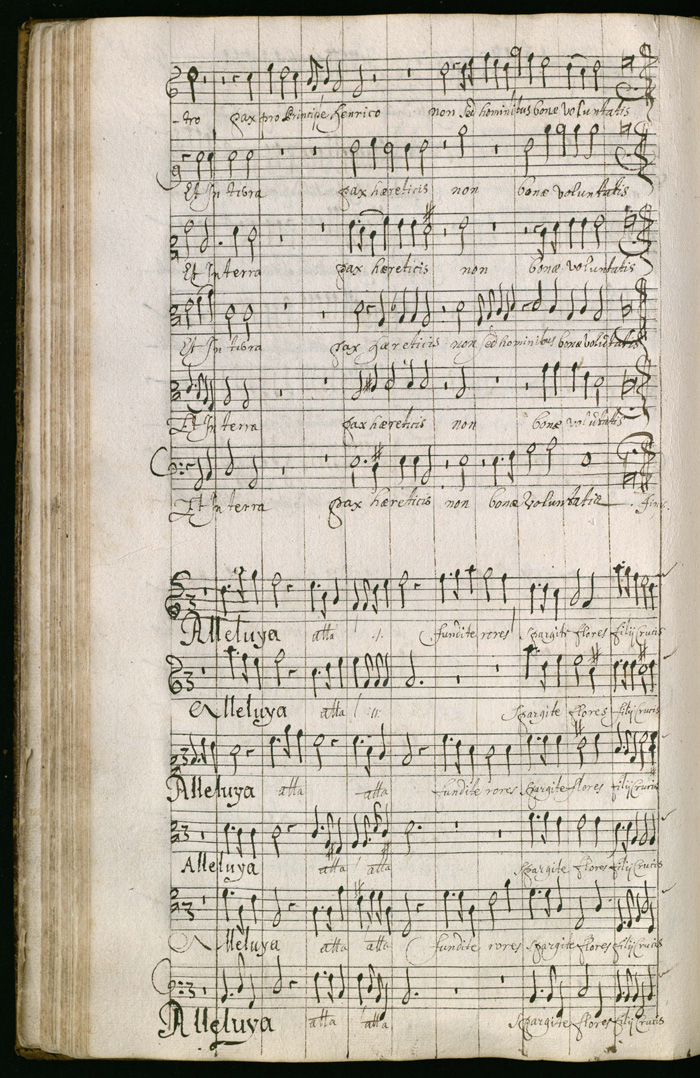 - tro pax pro Principe Henrico non sed hominibus bonæ voluntatis
Et In terra pax hæreticis non bonæ voluntatis
Et In terra pax hæreticis non bonæ voluntatis
Et In terra pax hæreticis non sed hominibus bonæ volũtatis
Et In terra pax hæreticis non bonæ volũtatis
Et In terra pax hæreticis non bonæ voluntatis
Alleluya atta .//. fundite rores spargite flores filij Crucis
Alleluya atta // spargite flores filij Crucis
Alleluya atta atta fundite rores spargite flores filij Crucis
Alleluya atta atta spargite flores filij Crucis
Alleluya atta atta fundite rores spargite flores filij Crucis
Alleluya atta atta spargite flores filij Crucis